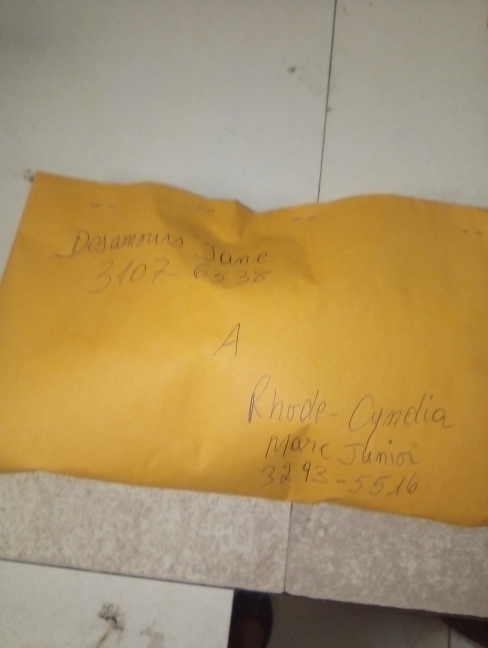 Desamours Jane
3107-6538
A
Rhode-Cyndia
Marc Junior
3293-5516